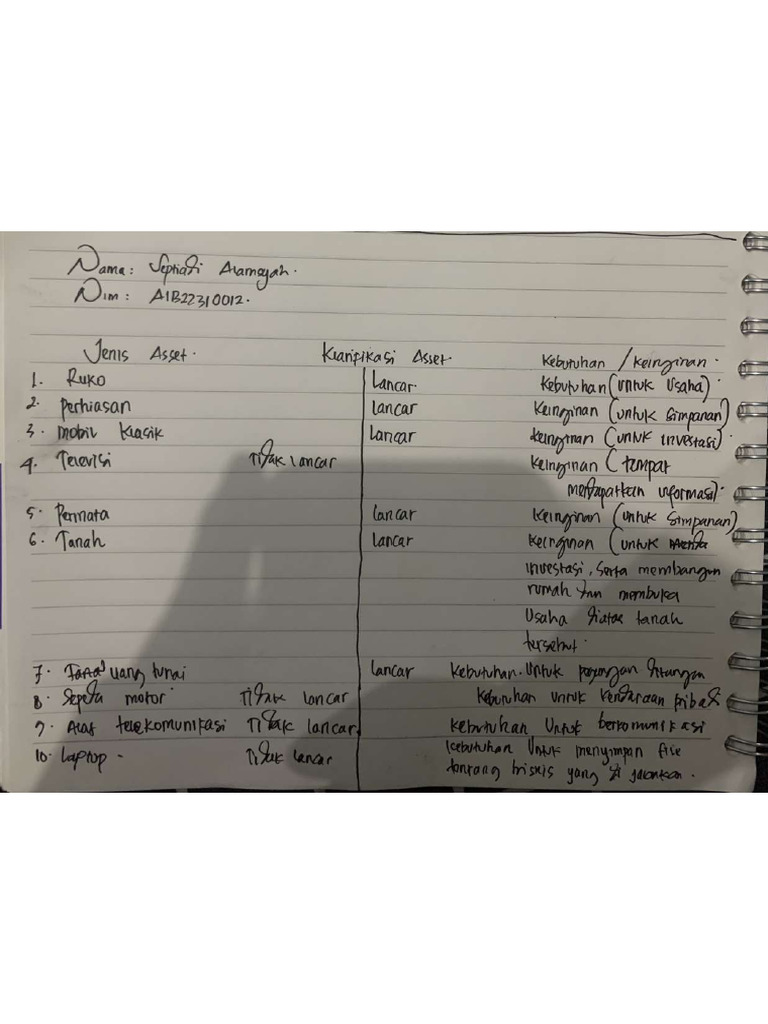 Nama: Septiadi Alamsyah.
Nim: A1B22310012.
Jenis Asset. Klarifikasi Asset. Kebutuhan / Keinginan.
1. Ruko Lancar. Kebutuhan (untuk Usaha).
2. perhiasan lancar Keinginan (untuk simpanan)
3. mobil klasik lancar keinginan (untuk investasi).
4. Televisi Tidak lancar keinginan (tempat
mendapatkan informasi).
5. Permata lancar keinginan (untuk simpanan)
6. Tanah lancar keinginan (untuk
investasi, serta membangun
rumah dan membuka
Usaha diatas tanah
tersebut.
7. uang tunai lancar kebutuhan. Untuk pegangan ditangan
8. Sepeda motor Tidak lancar kebutuhan untuk kendaraan pribadi
9. Alat telekomunikasi Tidak lancar kebutuhan Untuk berkomunikasi
10. Laptop. Tidak lancar kebutuhan Untuk menyimpan file
tentang bisnis yang di jalankan.